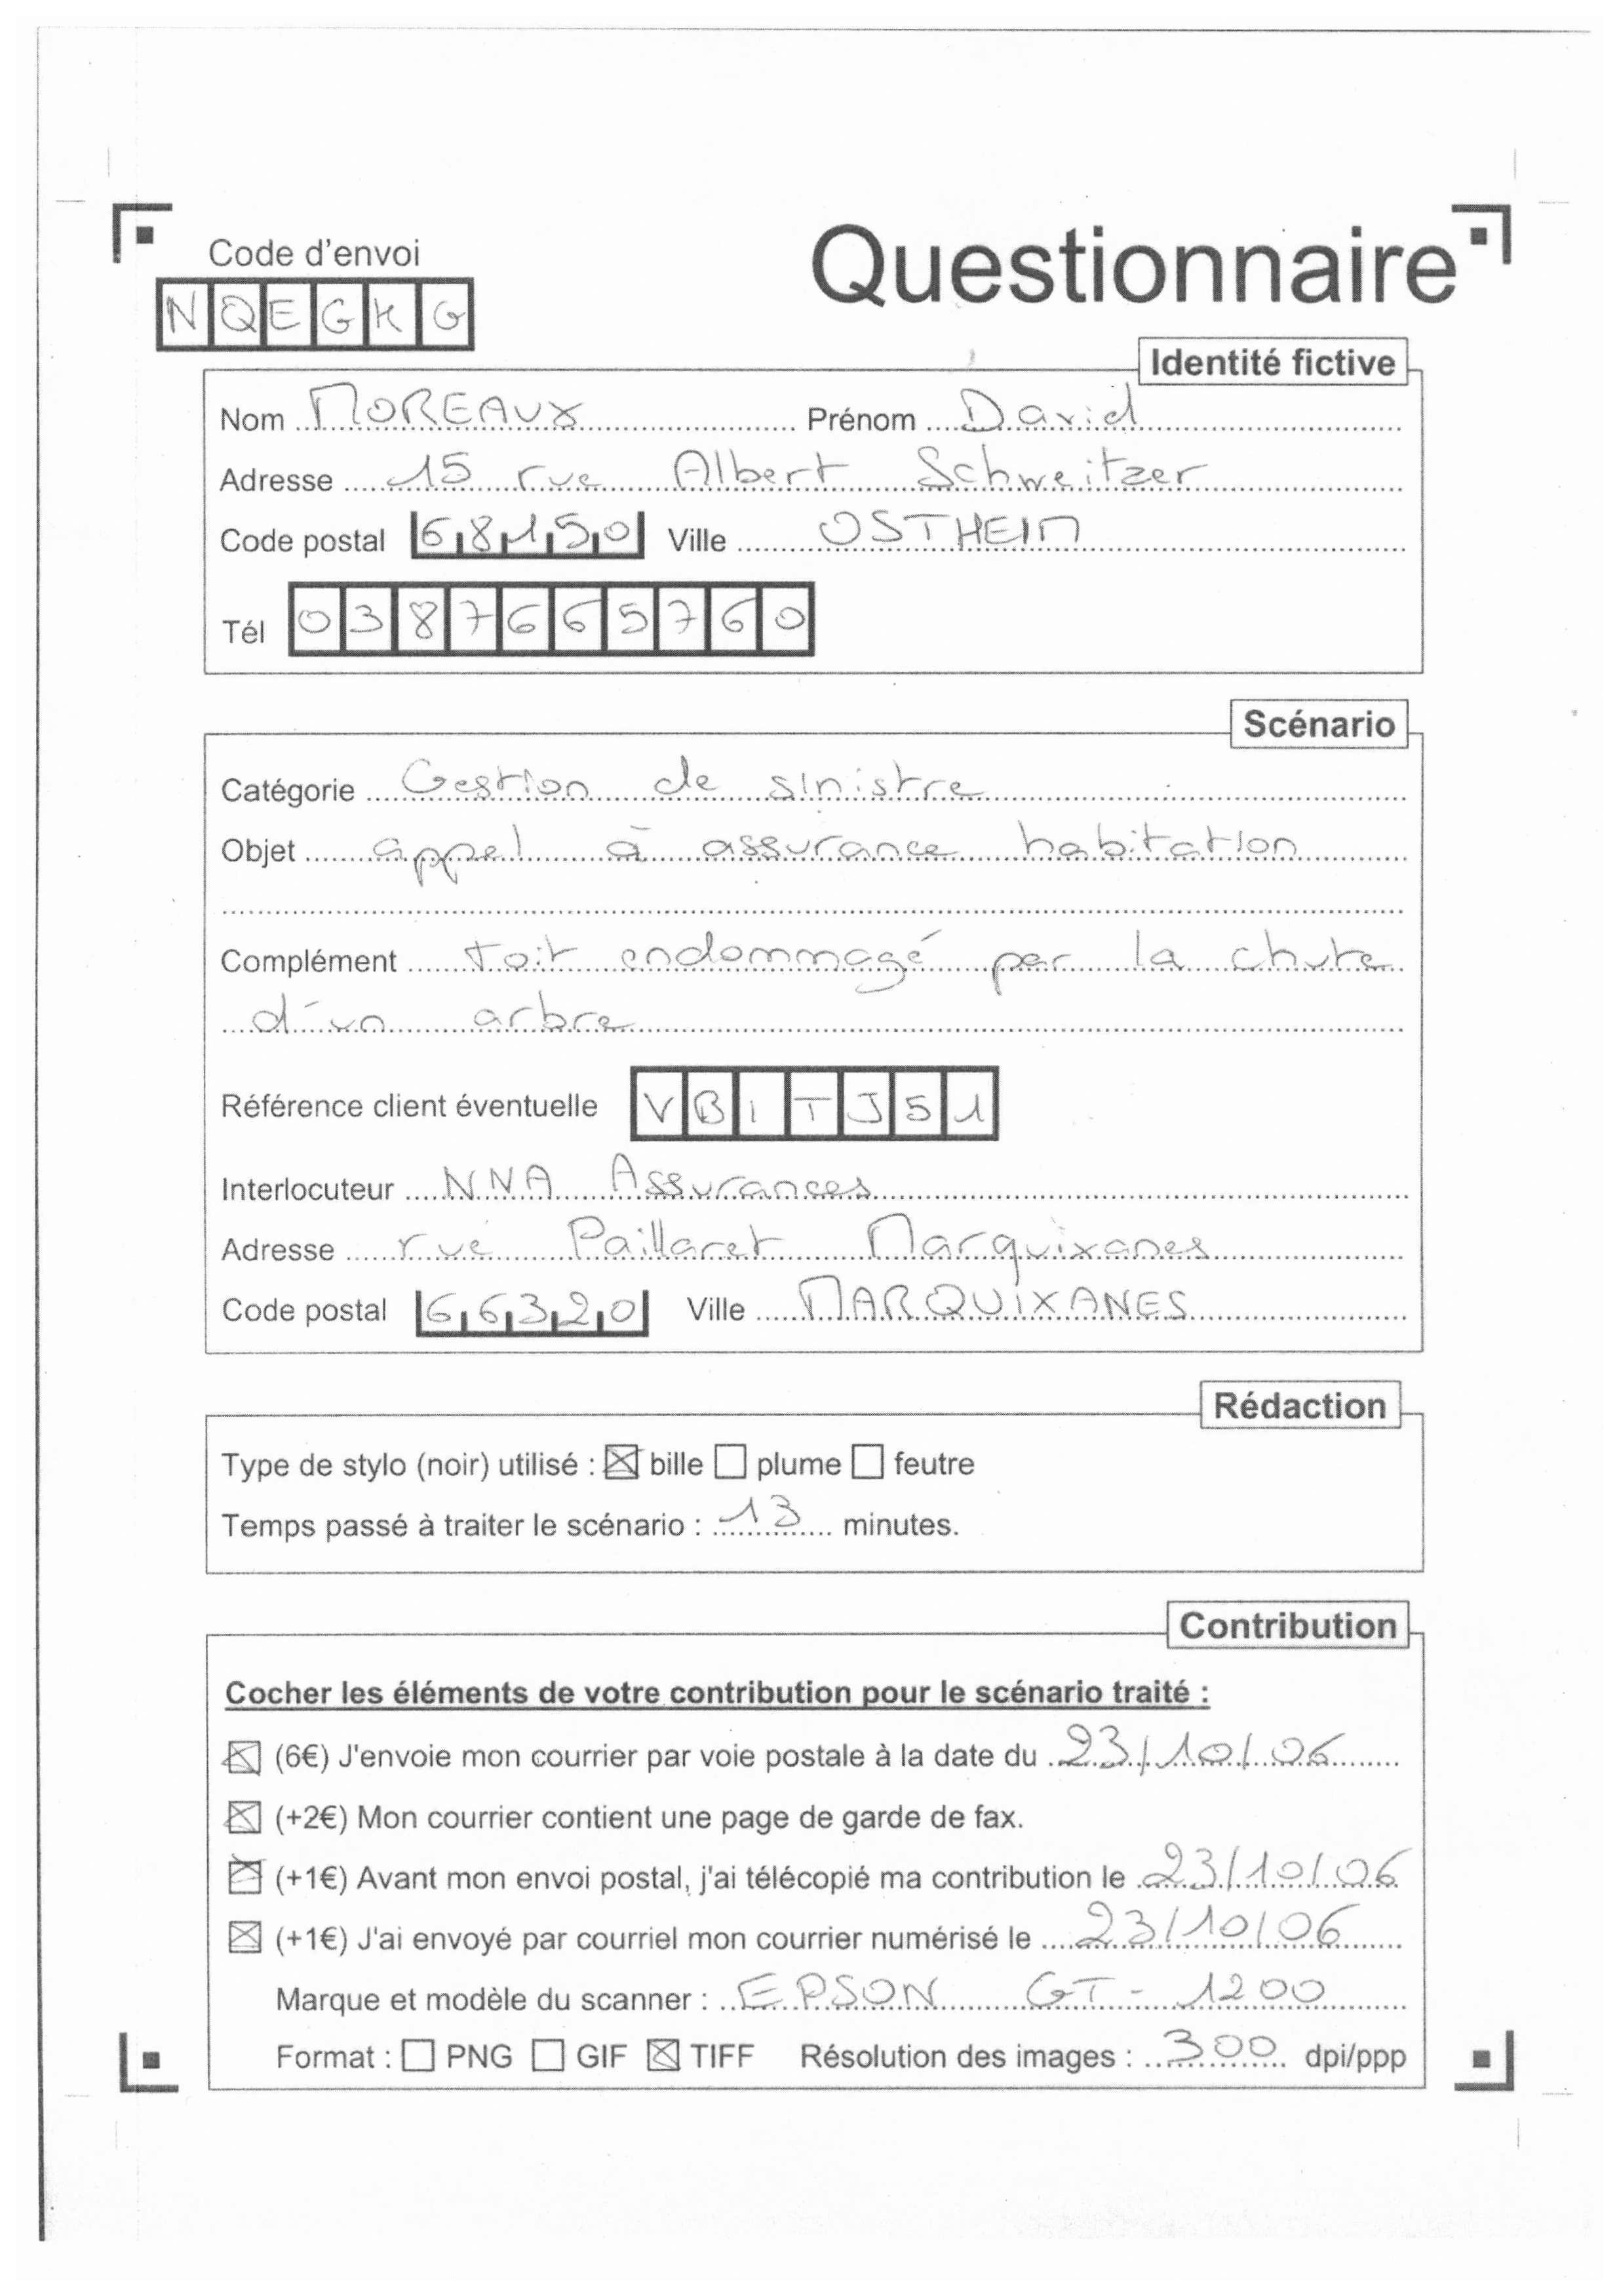 Code d'envoi
NQEGKG
Questionnaire
Identité fictive
Nom MOREAUX Prénom David
Adresse 15 rue Albert Schweitzer
Code postal 68150 Ville OSTHEIM
Tél 0387665760
Scénario
Catégorie Gestion de sinistre
Objet appel à assurance habitation
Complément toit endommagé par la chute
d'un arbre
Référence client éventuelle VBITJ51
Interlocuteur NNA Assurances
Adresse rue Paillaret Marquixanes
Code postal 66320 Ville MARQUIXANES
Rédaction
Type de stylo (noir) utilisé : ☒ bille ☐ plume ☐ feutre
Temps passé à traiter le scénario : 13 minutes.
Contribution
Cocher les éléments de votre contribution pour le scénario traité :
☒ (6€) J'envoie mon courrier par voie postale à la date du 23/10/06
☒ (+2€) Mon courrier contient une page de garde de fax.
☒ (+1€) Avant mon envoi postal, j'ai télécopié ma contribution le 23/10/06
☒ (+1€) J'ai envoyé par courriel mon courrier numérisé le 23/10/06
Marque et modèle du scanner : EPSON GT-1200
Format : ☐ PNG ☐ GIF ☒ TIFF Résolution des images : 300 dpi/ppp